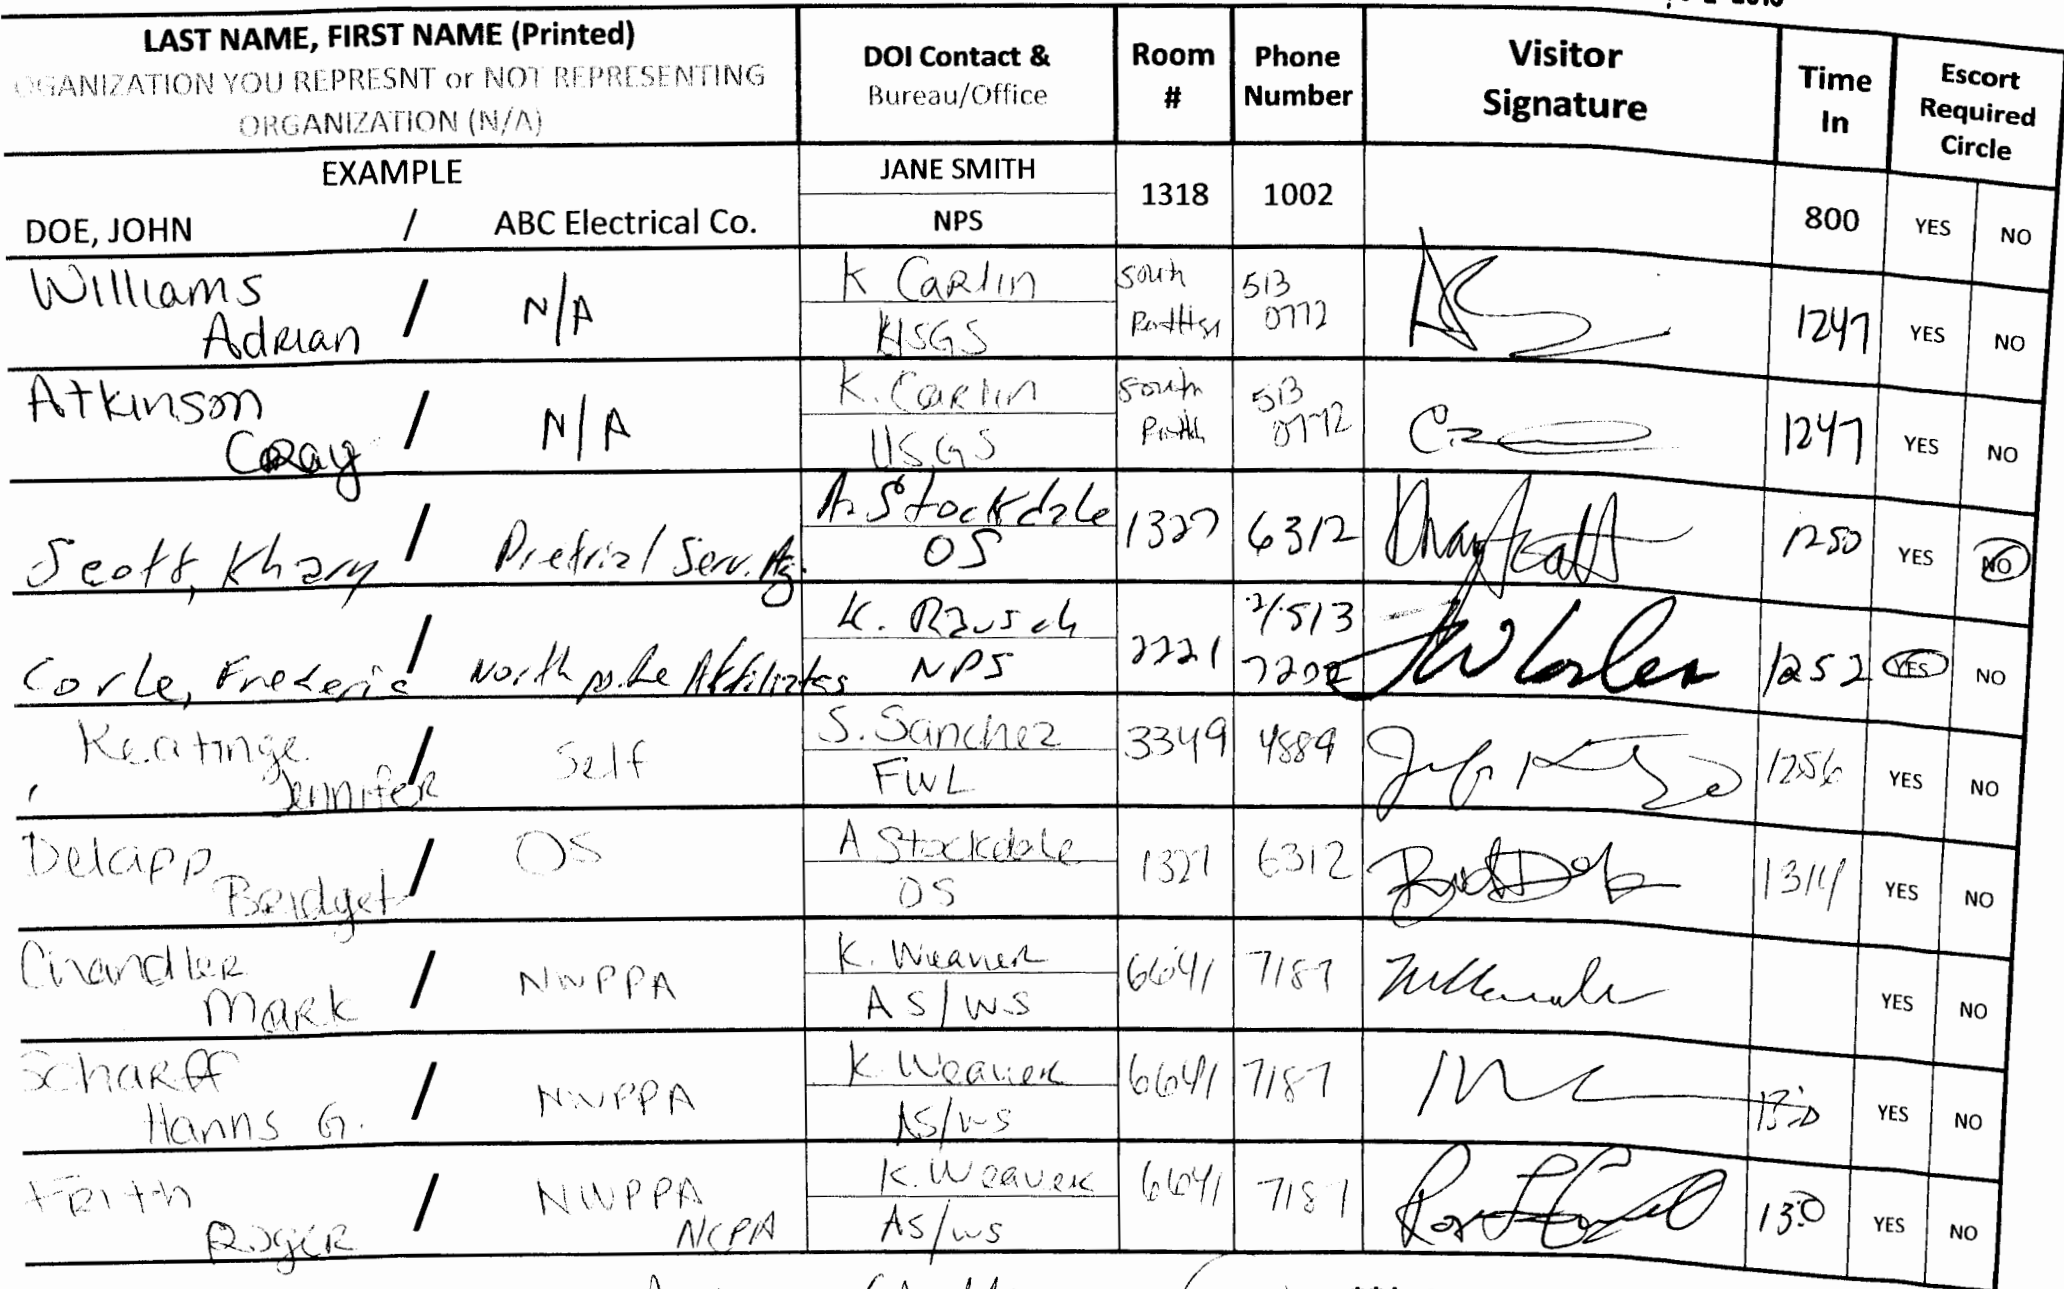 LAST NAME, FIRST NAME (Printed)
OGANIZATION YOU REPRESNT or NOT REPRESENTING
ORGANIZATION (N/A)
DOI Contact &
Bureau/Office
Room
#
Phone
Number
Visitor
Signature
Time
In
Escort
Required
Circle
EXAMPLE
DOE, JOHN / ABC Electrical Co.
JANE SMITH
NPS
1318
1002
800
YES
NO
Williams
Adrian
/ N/A
K Carlin
USGS
South
513
0772
1247
YES
NO
Atkinson
Cray
/ N/A
K. Carlin
USGS
South
513
0772
1247
YES
NO
Scott, Khary / Pretrial Serv. Ag.
A. Stockdale
OS
1327
6312
1250
YES
NO
Corle, Frederic / North pole Affiliates
K. Rausch
NPS
2221
513
1252
YES
NO
Keatinge
Jennifer
/ Self
S. Sanchez
FWL
3349
4889
1256
YES
NO
Delapp
Bridget
/ OS
A Stockdale
OS
1327
6312
1314
YES
NO
Chandler
Mark
/ NWPPA
K. Weaver
AS/WS
6641
7187
YES
NO
Scharff
Hanns G.
/ NWPPA
K. Weaver
AS/WS
6641
7187
YES
NO
Frith
Roger
/ NWPPA
NCPA
K. Weaver
AS/WS
6641
7187
YES
NO